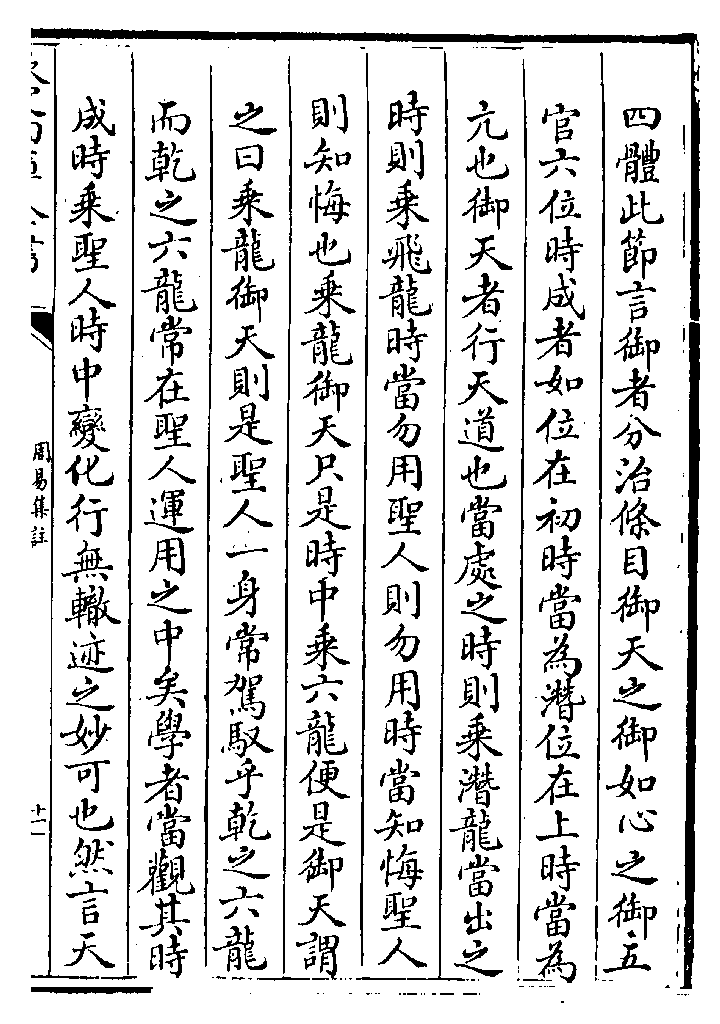 四體此節言御者分治條目御天之御如心之御五
官六位時成者如位在初時當為濳位在上時當為
亢也御天者行天道也當處之時則乘濳龍當出之
時則乘飛龍時當勿用聖人則勿用時當知悔聖人
則知悔也乘龍御天只是時中乘六龍便是御天謂
之曰乘龍御天則是聖人一身常駕馭乎乾之六龍
而乾之六龍常在聖人運用之中矣學者當觀其時
成時乘聖人時中變化行無轍迹之妙可也然言天
周易集註
十一